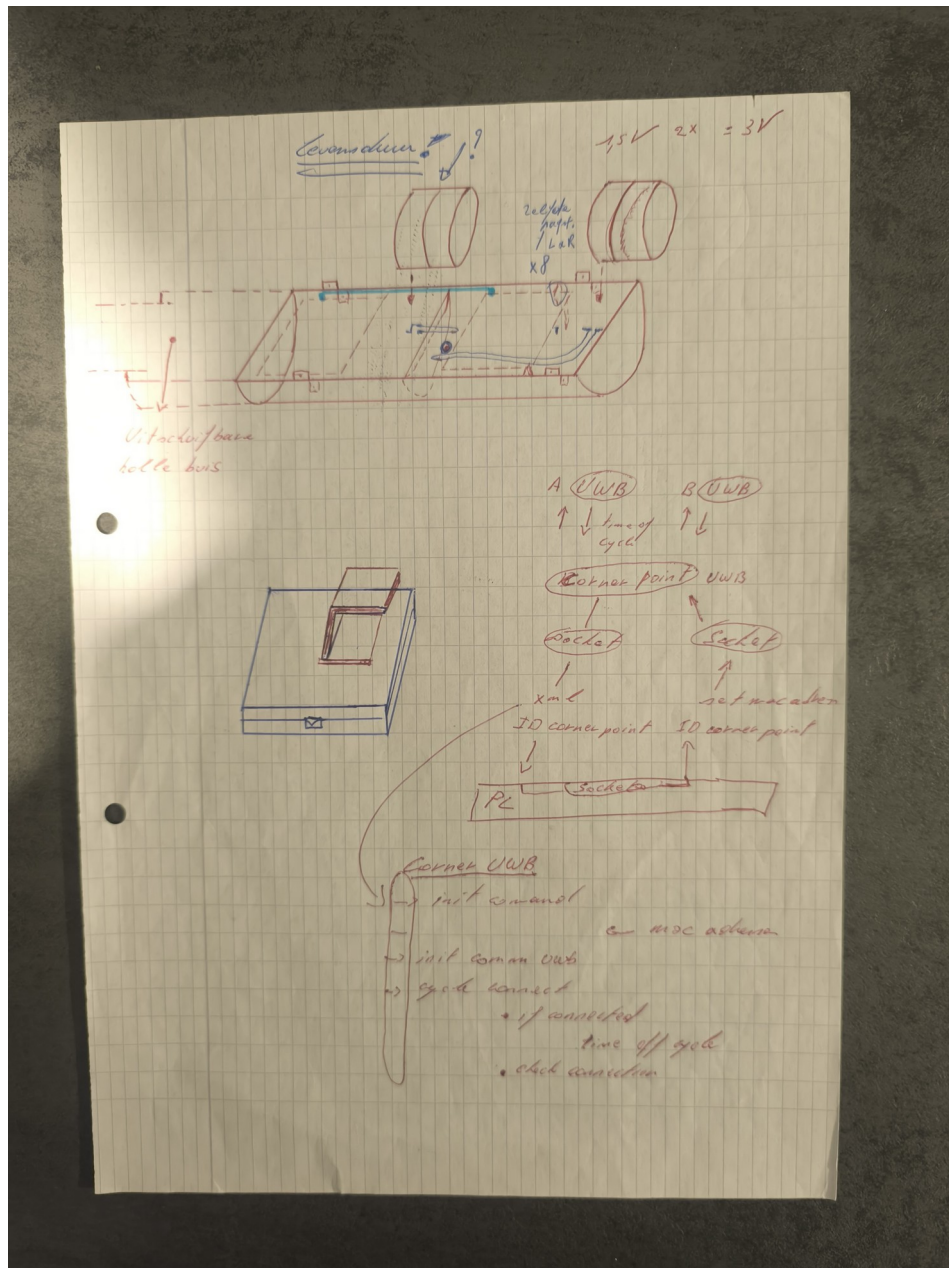 ?
1,5V 2x = 3V
x8
holle buis
A UWB B UWB
time of
cycle
Corner point UWB
Socket Socket
xml set mac adress
ID corner point ID corner point
Sockets
PC
Corner UWB
init comand
mac adressen
init comm uwb
cycle connect
• if connected
time off cycle
• check connection